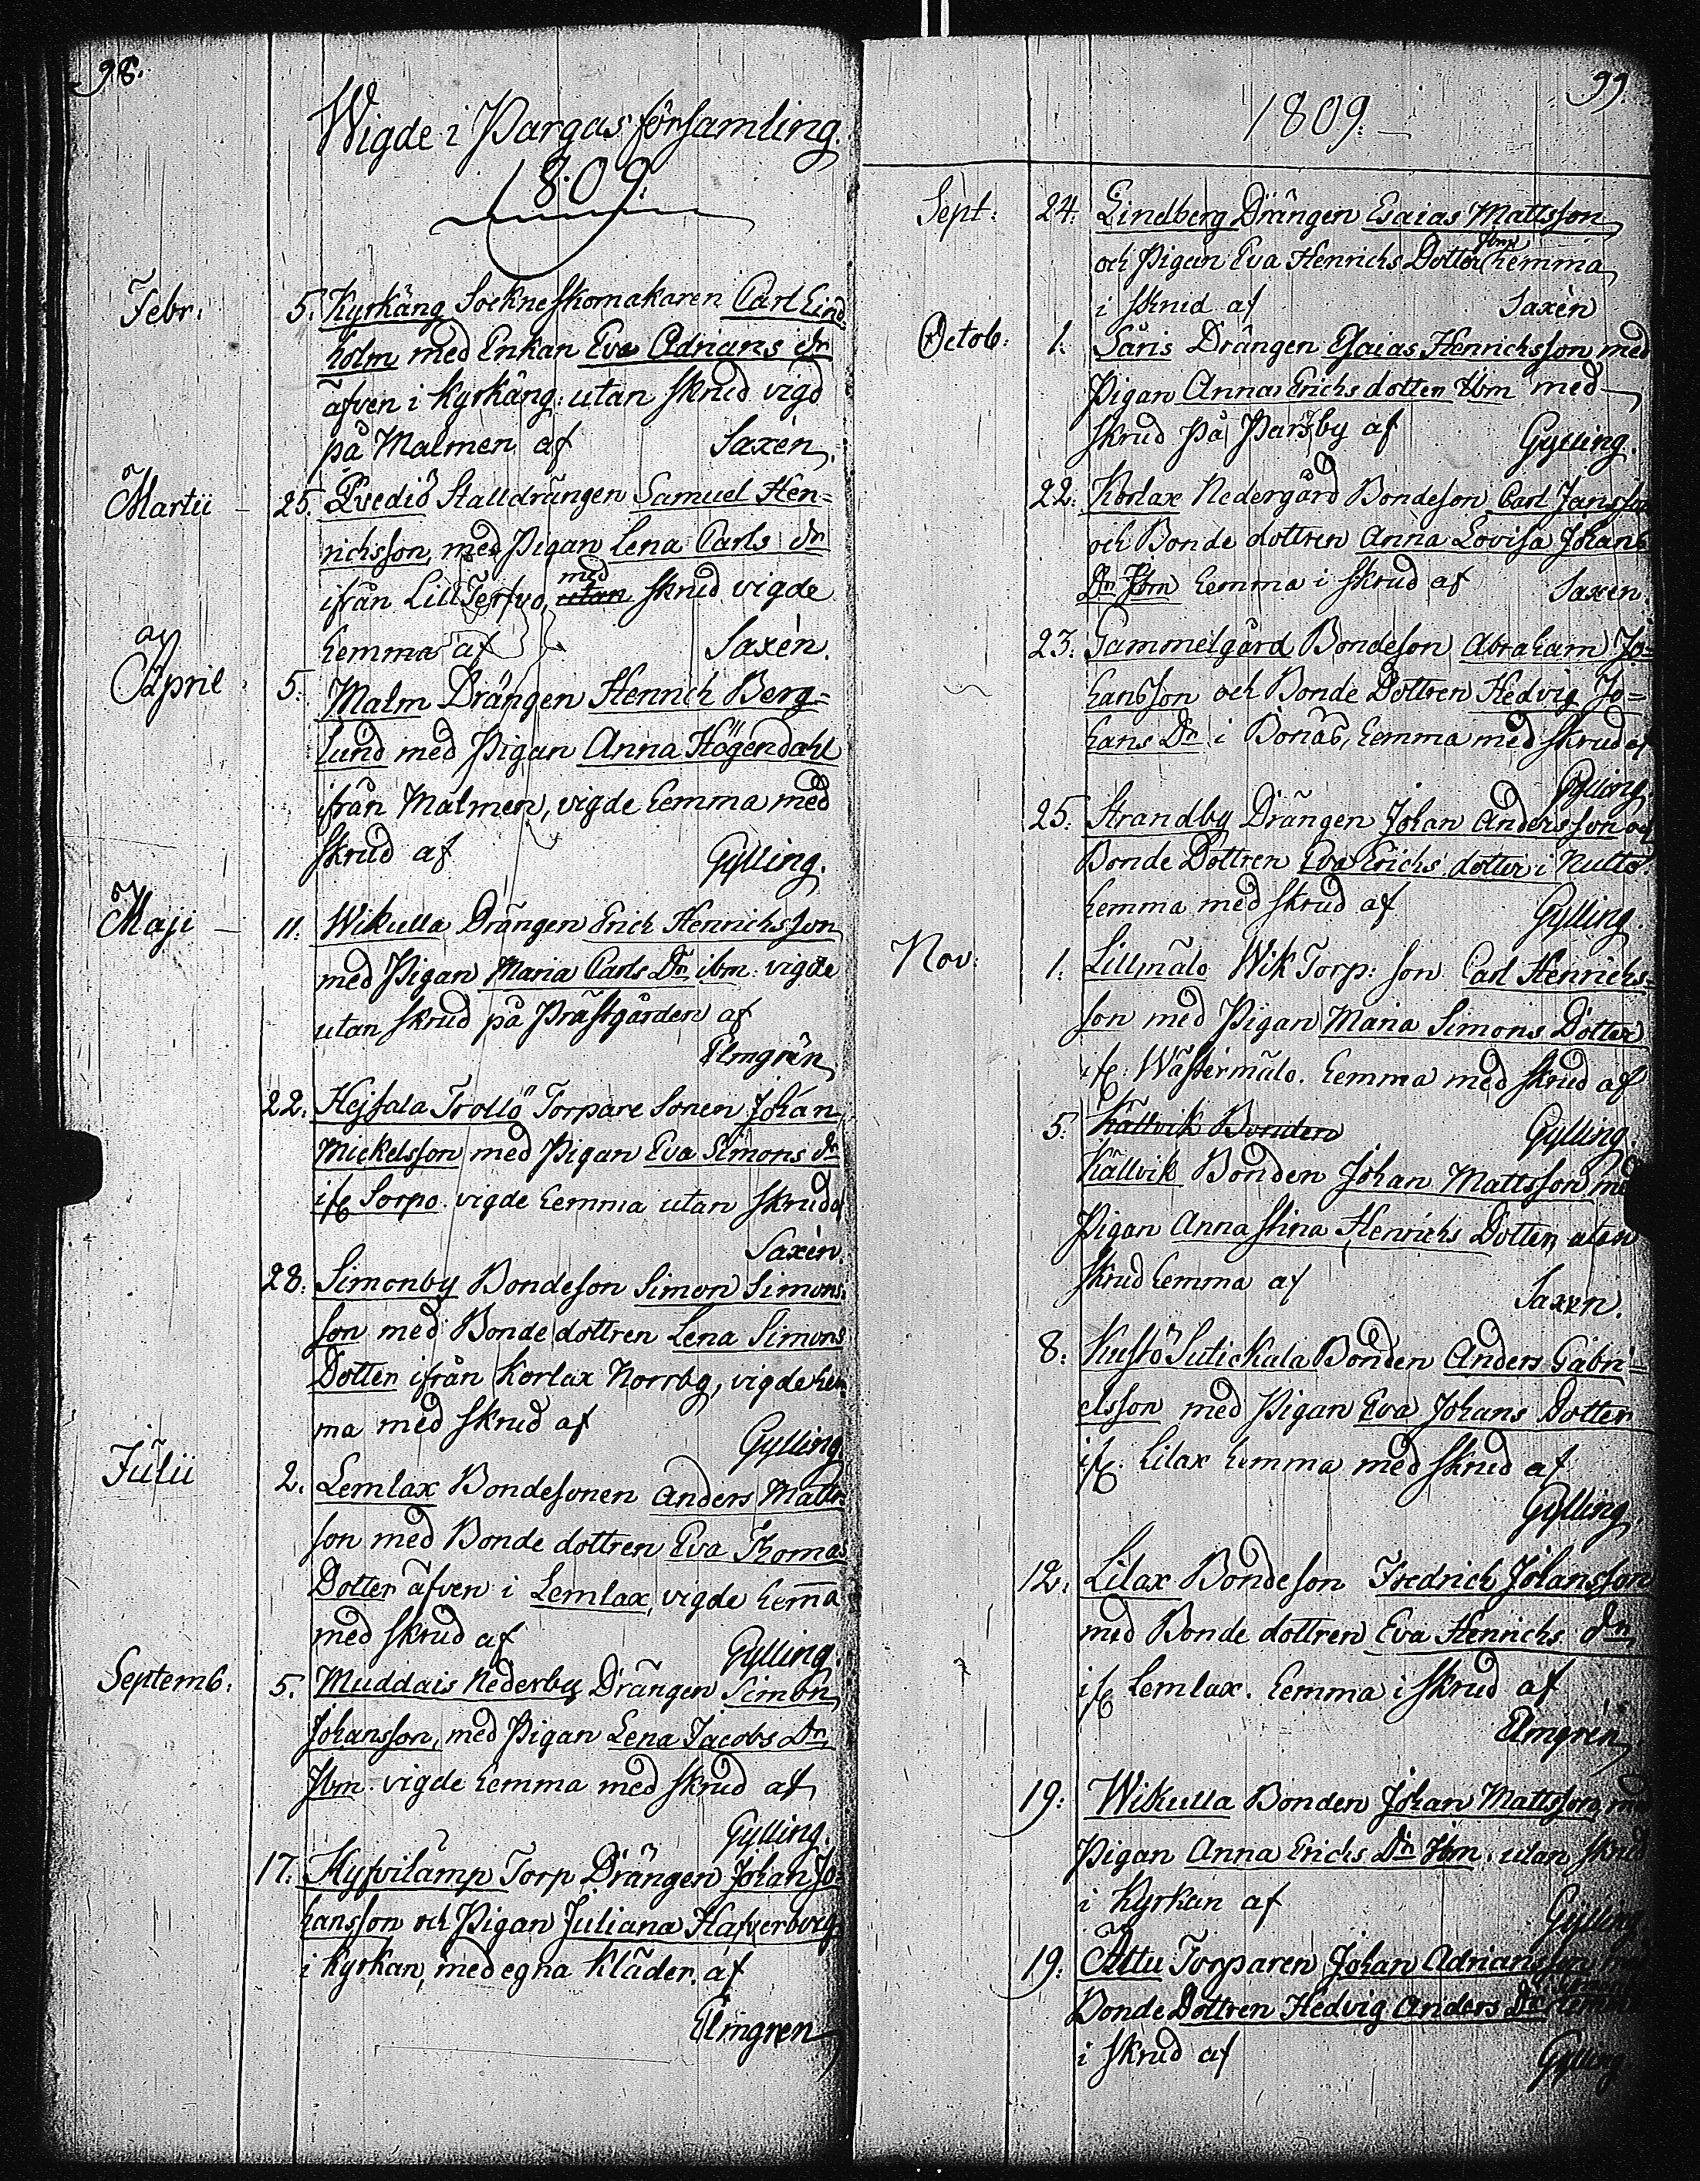 98.
Wigde i Pargas församling.
1809.
Febr: 5. Kyrkäng Sockneskomakaren Carl Lind-
holm med Enkan Eva Adrians dr
äfven i Kyrkäng: utan skrud vigd
på Malmen af Saxén.
Martii 25. Qvediö Stalldrängen Samuel Hen=
richsson, med Pigan Lena Carls dr
ifrån Lill Tervo, med utan skrud vigde
hemma af Saxén.
April 5. Malm Drängen Henrich Berg=
lund med Pigan Anna Högendahl
ifrån Malmen, vigde hemma med
skrud af Gylling.
Maji 11. Wikulla Drängen Erich Henrichsson
med Pigan Maria Carls Dr ibm: vigde
utan skrud på Prästgården af
Elmgrén
22. Hejsala Trollö Torpare Sonen Johan
Mickelsson med Pigan Eva Simons dr
ifr Sorpo. vigde hemma utan skrud af
Saxén
28. Simonby Bondeson Simon Simons-
son med Bonde dottren Lena Simons
Dotter ifrån Korlax Norrby, vigde hem
ma med skrud af
Gylling
Julii 2. Lemlax Bondesonen Anders Matts
son med Bonde dottren Eva Thomas
Dotter äfven i Lemlax, vigde hemma
med skrud af
Gylling.
Septemb: 5. Muddais Nederby Drängen Simon
Johansson, med Pigan Lena Jacobs Dr
Ibm. vigde hemma med skrud af
Gylling.
17. Kyfvilamp Torp Drängen Johan Jo-
hansson och Pigan Juliana Hafverberg
i Kyrkan, med egna Kläder, af
Elmgren
99.
1809.
Sept: 24. Lindberg Drängen Esaias Mattsson
och Pigan Eva Henrichs Dotter Ibm hemma
i skrud af Saxén
Octob: 1. Såris Drängen Esaias Henrichsson med
Pigan Anna Erichs dotter Ibm med
skrud på Parsby af Gylling.
22. Korlax Nedergård Bondeson Carl Jansson
och Bonde dottren Anna Lovisa Johans
Dr Ibm hemma i skrud af Saxén.
23. Gammelgård Bondeson Abraham Jo-
hansson och Bonde Dottren Hedvig Jo=
hans Dr i Bonäs, hemma med skrud af
Gylling.
25. Strandby Drängen Johan Andersson och
Bonde Dottren Eva Erichs dotter i Nutto
hemma med skrud af Gylling.
Nov: 1. Lillmälo Wik Torp: son Carl Henrichs=
son med Pigan Maria Simons Dotter
ifr: Wästermälo. hemma med skrud af
5. Källvik Bonden Gylling.
Källvik Bonden Johan Mattsson med
Pigan Anna Stina Henrichs Dotter, utan
skrud hemma af
Saxén.
8. Kustö Sutickala Bonden Anders Gabri=
elsson med Pigan Eva Johans Dotter
ifr: Lilax hemma med skrud af
Gylling.
12. Lilax Bondeson Fredrich Johansson
med Bonde dottren Eva Henrichs dr
ifr Lemlax. hemma i skrud af
Elmgrén
19. Wikulla Bonden Johan Mattsson med
Pigan Anna Erichs Dr Ibm. utan skrud
i Kyrkan af
Gylling
19. Attu Torparen Johan Adriansson med
Bonde Dottren Hedvig Anders Dr hemma
i skrud af Gylling